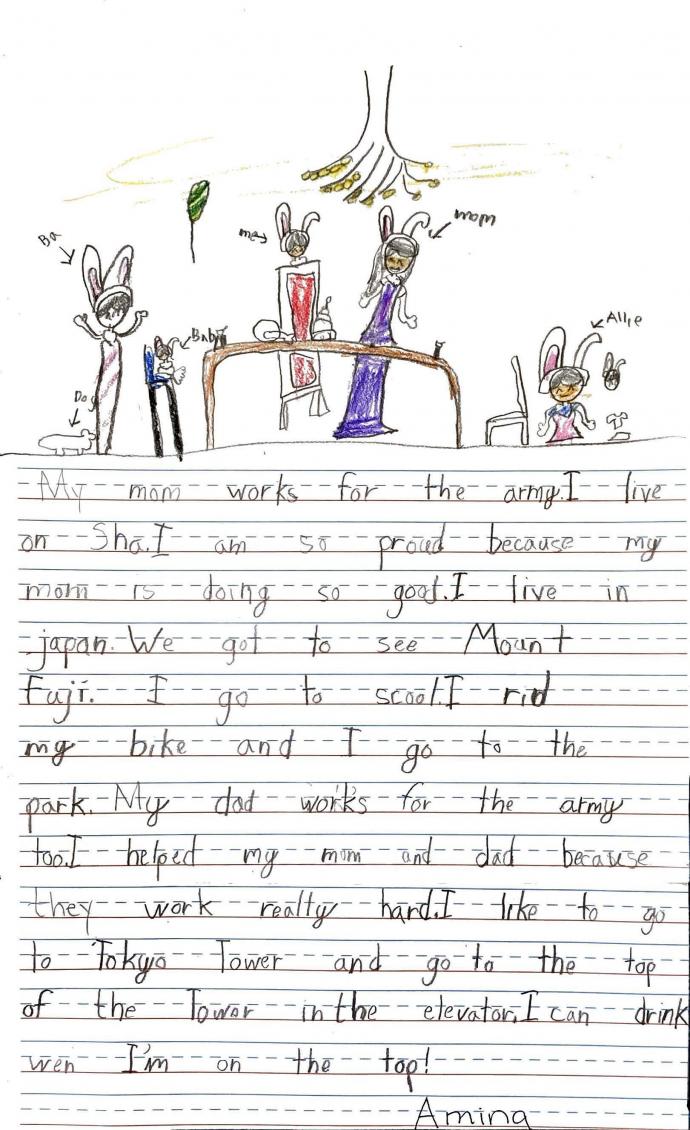 Ba
Mom
Baby
Dog
Allie
My mom works for the army.I live
on Sha.I am so proud because my
mom is doing so good.I live in
japan. We got to see Mount
Fuji. I go to scool.I rid
my bike and I go to the
park. My dad works for the army
too.I helped my mom and dad because
they work really hard.I like to go
to Tokyo Tower and go to the top
of the Tower in the elevator.I can drink
wen I'm on the top!
Amina